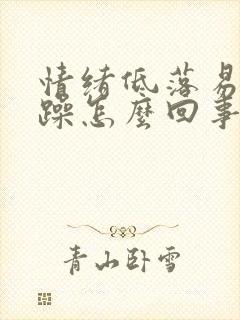 情绪低落易
躁怎麽回事
青山卧雪